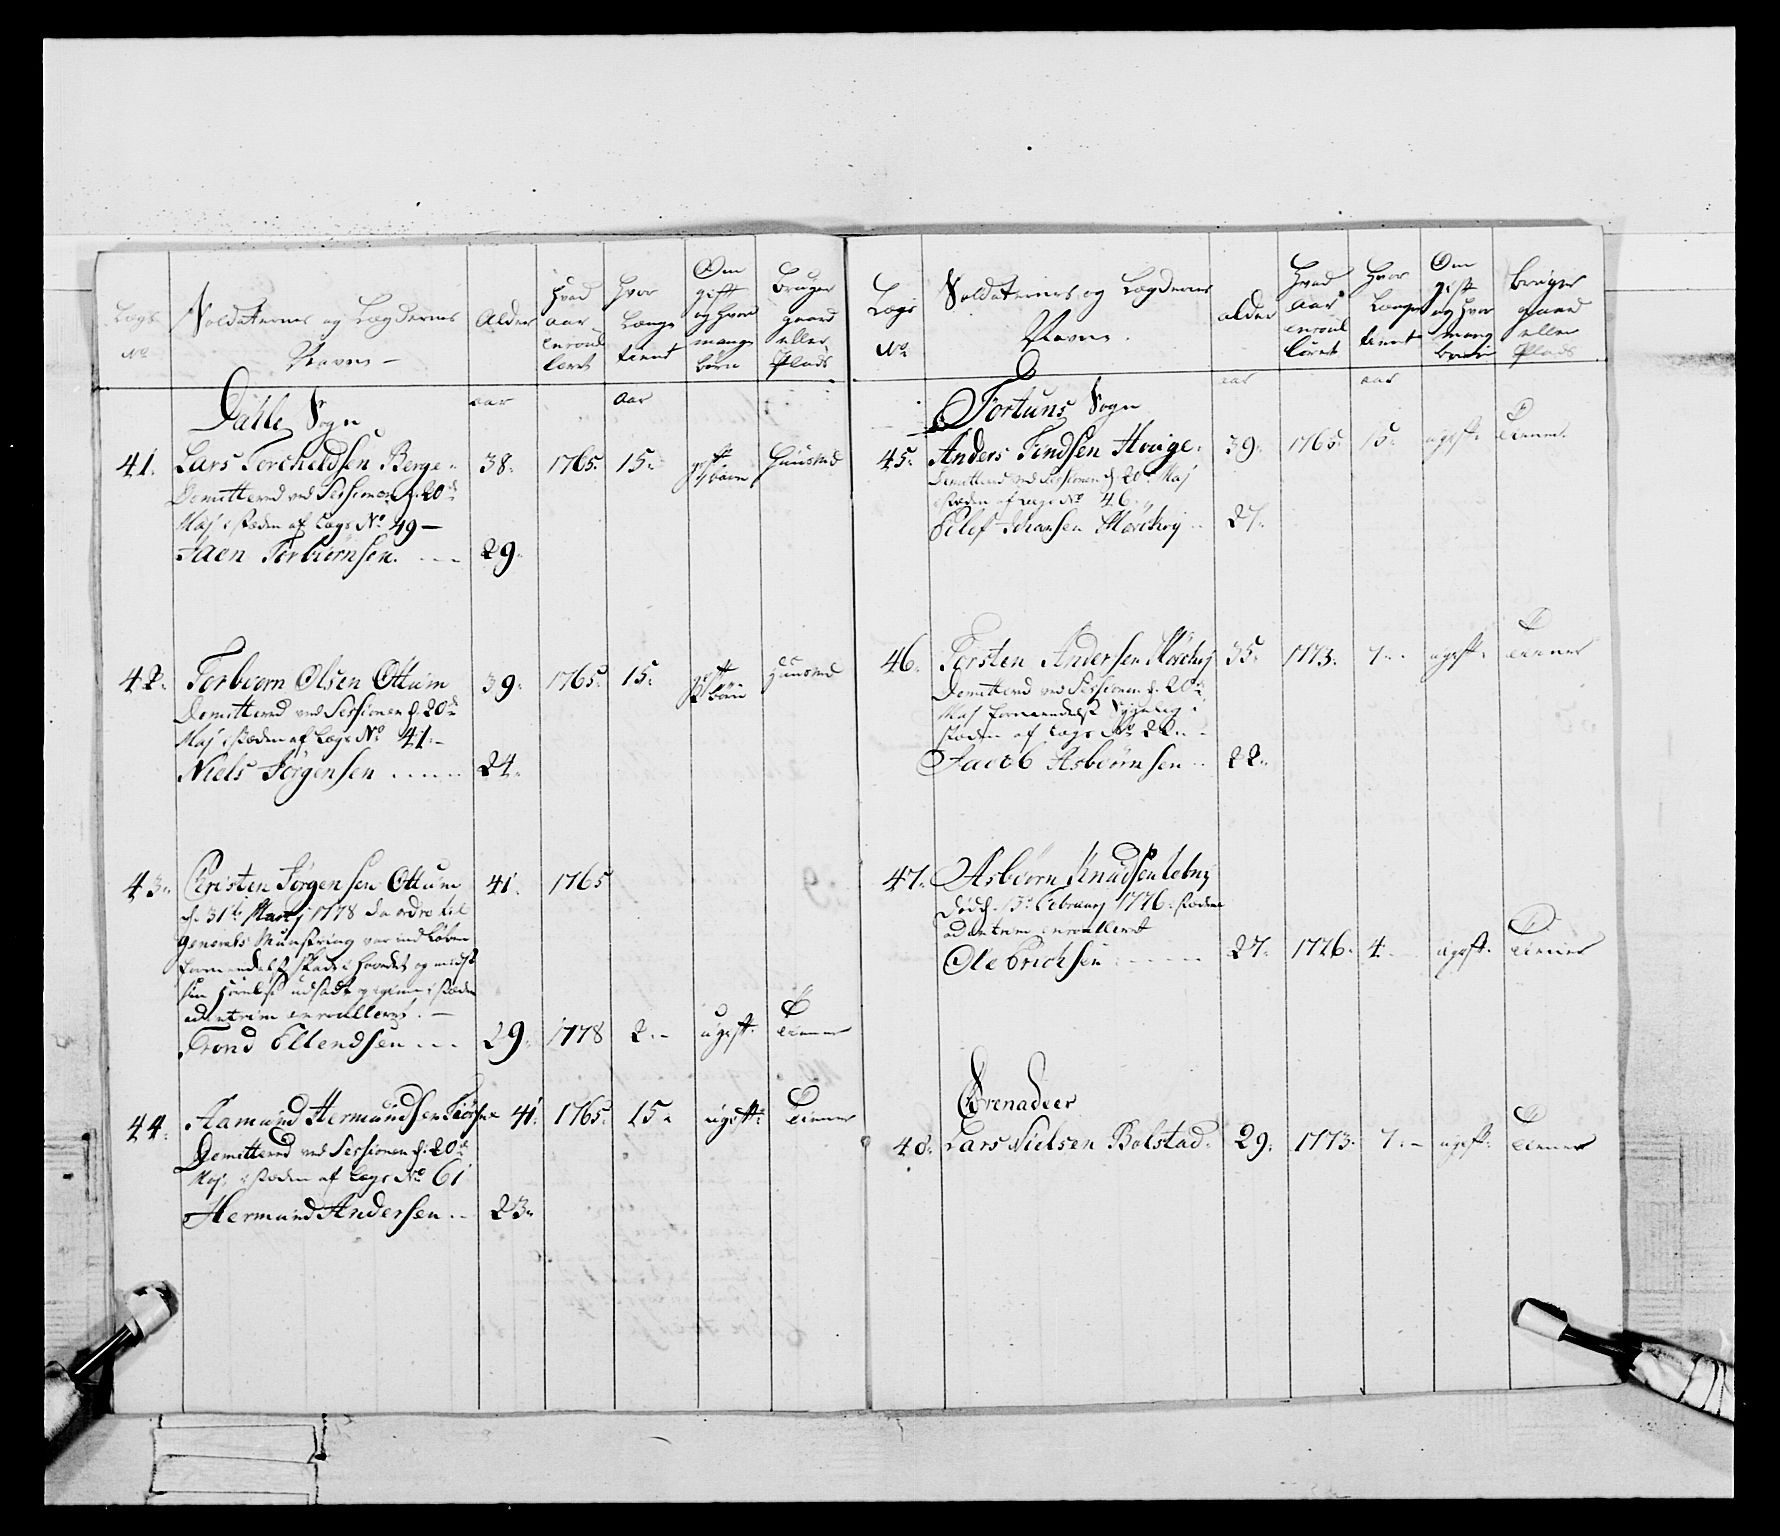 Lægs
No
Soldaternes og Lægdernes
Navne –
Alder
Hvad
aar
enroul
leret
Hvor
Længe
tient
Om
gift
og hvor
mange
børn
Bruger
gaard
eller
Plads
Dahle Sogn
aar
aar
41. Lars Torcheldsen Berge. 38. 1765. 15. gift Huusmd
Demitterud ved Sessionen d. 20de
Maj i stæden af Lægs No 49 –
Jaen Torbiørnsen. 29.
42. Torbiørn Olsen Ottum 39. 1765. 15. gift børn Huusmd
Demitterud ved Sessionen d. 20de
Maj i stæden af Lægs No 41. –
Niels Jørgensen 24.
43. Christen Jørgensen Ottum 41. 1765
d. 31te Martj 1778 da ordre til
Generals Munstring var indløben
skade i hovedet og mist
sin Hørelse udsadt i stæden
adintrim enroulleret. –
Trond Ellendsen 29. 1778 2. – ugift. Tiener
44. Aamund Hermundsen 41. 1765. 15. ugift. Tiener
Demitterud ved Sessionen d. 20de
Maj. i stæden af Lægs No 61
Hermund Andersen 23.
Lægs
No
Soldaternes og Lægdernes
Navne.
alder
Hvad
aar
enroul
leret
Hvor
Længe
tient
Om
gift
og hvor
mange
børn
bruger
gaard
eller
Plads
aar
aar
Fortuns Sogn
45. Anders Findsen Houge. 39. 1765. 15. ugift. Tiener.
Demitterud ved Sessionen d. 20de Maj
i stæden af Lægs No 46.
Ellef Johansen 27.
46. Torsten Andersen 35. 1773. 7. ugift. Tiener
Demitterud ved Sessionen d. 20de
Maj formedelst Sygelig i
stæden af Lægs No 22.
Jacob Asbiørnsen 22.
47. Asbiørn Knudsen
Død d. 13de Februarj 1776. i stæden
adintrim enroulleret
Ole Erichsen 27. 1776. 4. ugift. Tiener
Grenadeer
48. Lars Nielsen Bolstad. 29. 1773. 7. – ugift. Tiener